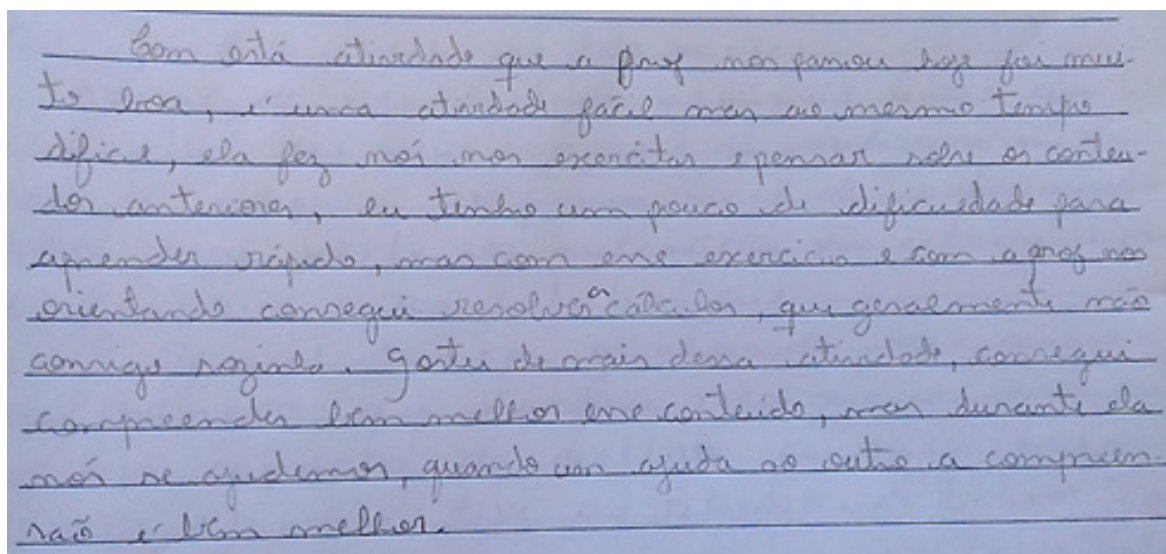 Bom está atividade que a prof nos passou hoje foi mui-
to boa, é uma atividade fácil mas ao mesmo tempo
difícil, ela fez nós nos exercitar e pensar sobre os conteu-
dos anteriores, eu tenho um pouco de dificuldade para
aprender rápido, mas com esse exercício e com a prof nos
orientando consegui resolver os cálculos, que geralmente não
consigo sozinha. Gostei de mais dessa atividade, consegui
compreender bem melhor esse conteúdo, mas durante ela
nós se ajudemos, quando um ajuda ao outro a compreen-
são é bem melhor.